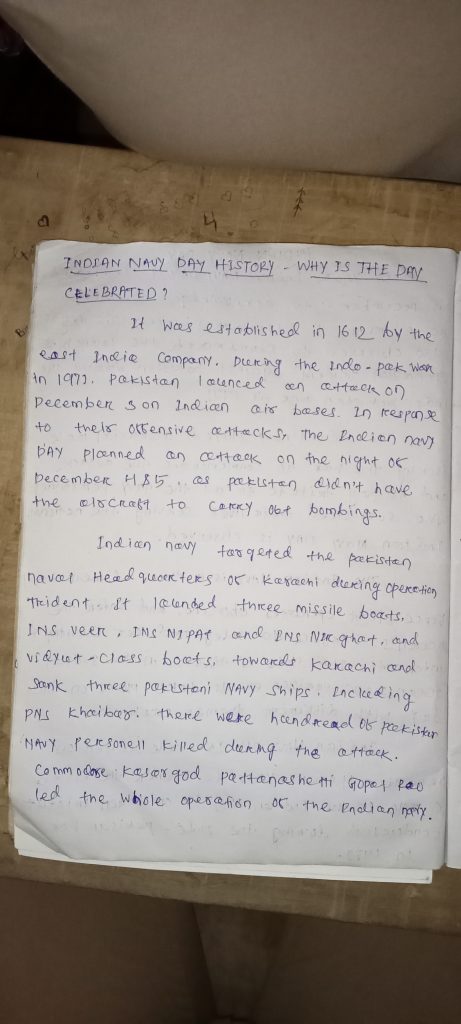 INDIAN NAVY DAY HISTORY - WHY IS THE DAY
CELEBRATED ?
It was established in 1612 by the
east India Company. During the Indo - pak war
in 1971. Pakistan launced an attack on
December 3 on Indian air bases. In response
to their offensive attacks, The Indian navy
DAY planned an attack on the night of
December 4 & 5 . as pakistan didn't have
the aircraft to carry out bombings.
Indian navy targeted the pakistan
naval Head quarters of Karachi during operation
Trident. It launded three missile boats,
INS veer, INS NIPAT and INS Nir ghat, and
vidyut - class boats, towards Karachi and
Sank three pakistani NAVY ships. Including
PNS Khaibar. there were hundread of pakistan
NAVY Personell killed during the attack.
Commodore Kasargod pattanashetti Gopal Rao
led the whole operation of the Indian navy.